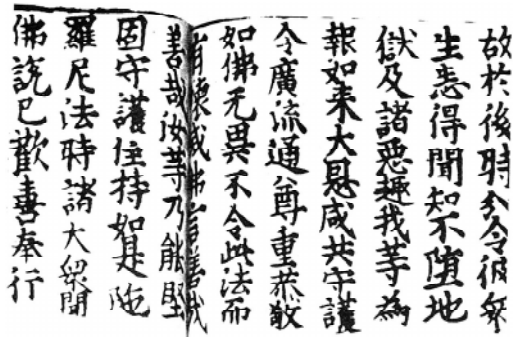 故於後時分令彼衆
生悉得聞知不墮地
獄及諸惡趣我等為
報如来大恩咸共守護
令廣流通尊重恭敬
如佛无異不令此法而
有壞滅佛言善哉
善哉汝等乃能堅
固守護住持如是陁
羅尼法時諸大衆聞
佛說已歡喜奉行